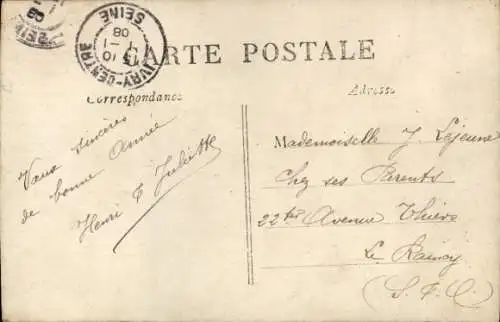 IVRY-CENTRE
SEINE
10 - 1
08
SEINE
08
CARTE POSTALE
Correspondance
Adresse
Vœux sincères
de bonne Année
Henri & Juliette
Mademoiselle J. Lejeune
Chez ses Parents
22 ter Avenue Thiers
Le Raincy
(S. & O.)